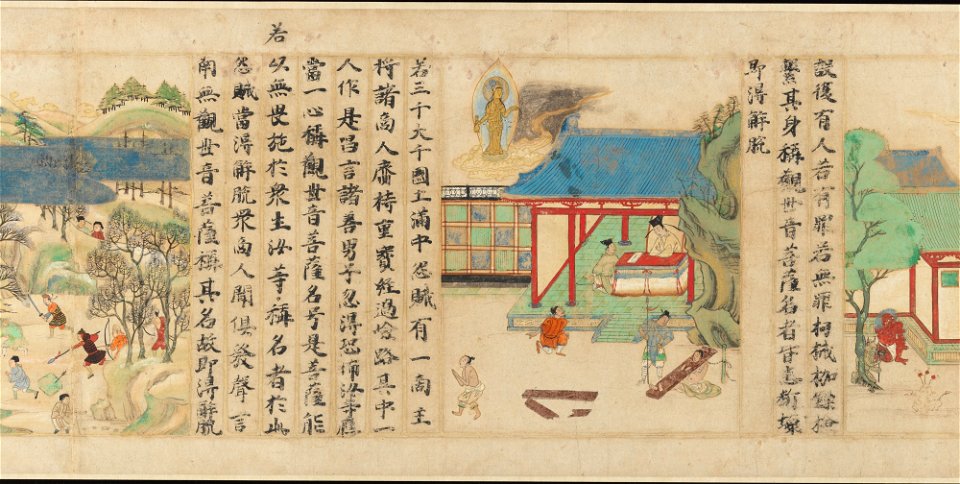 設復有人若有罪若無罪杻械枷鎖撿
繫其身稱觀世音菩薩名者皆悉斷壞
即得解脫
若三千大千國土滿中怨賊有一商主
將諸商人齎持重寶經過嶮路其中一
人作是唱言諸善男子勿得恐怖汝等應
當一心稱觀世音菩薩名号是菩薩能
若
以無畏施於衆生汝等稱名者於此
怨賊當得解脫衆商人聞俱發聲言
南無觀世音菩薩稱其名故即得解脫